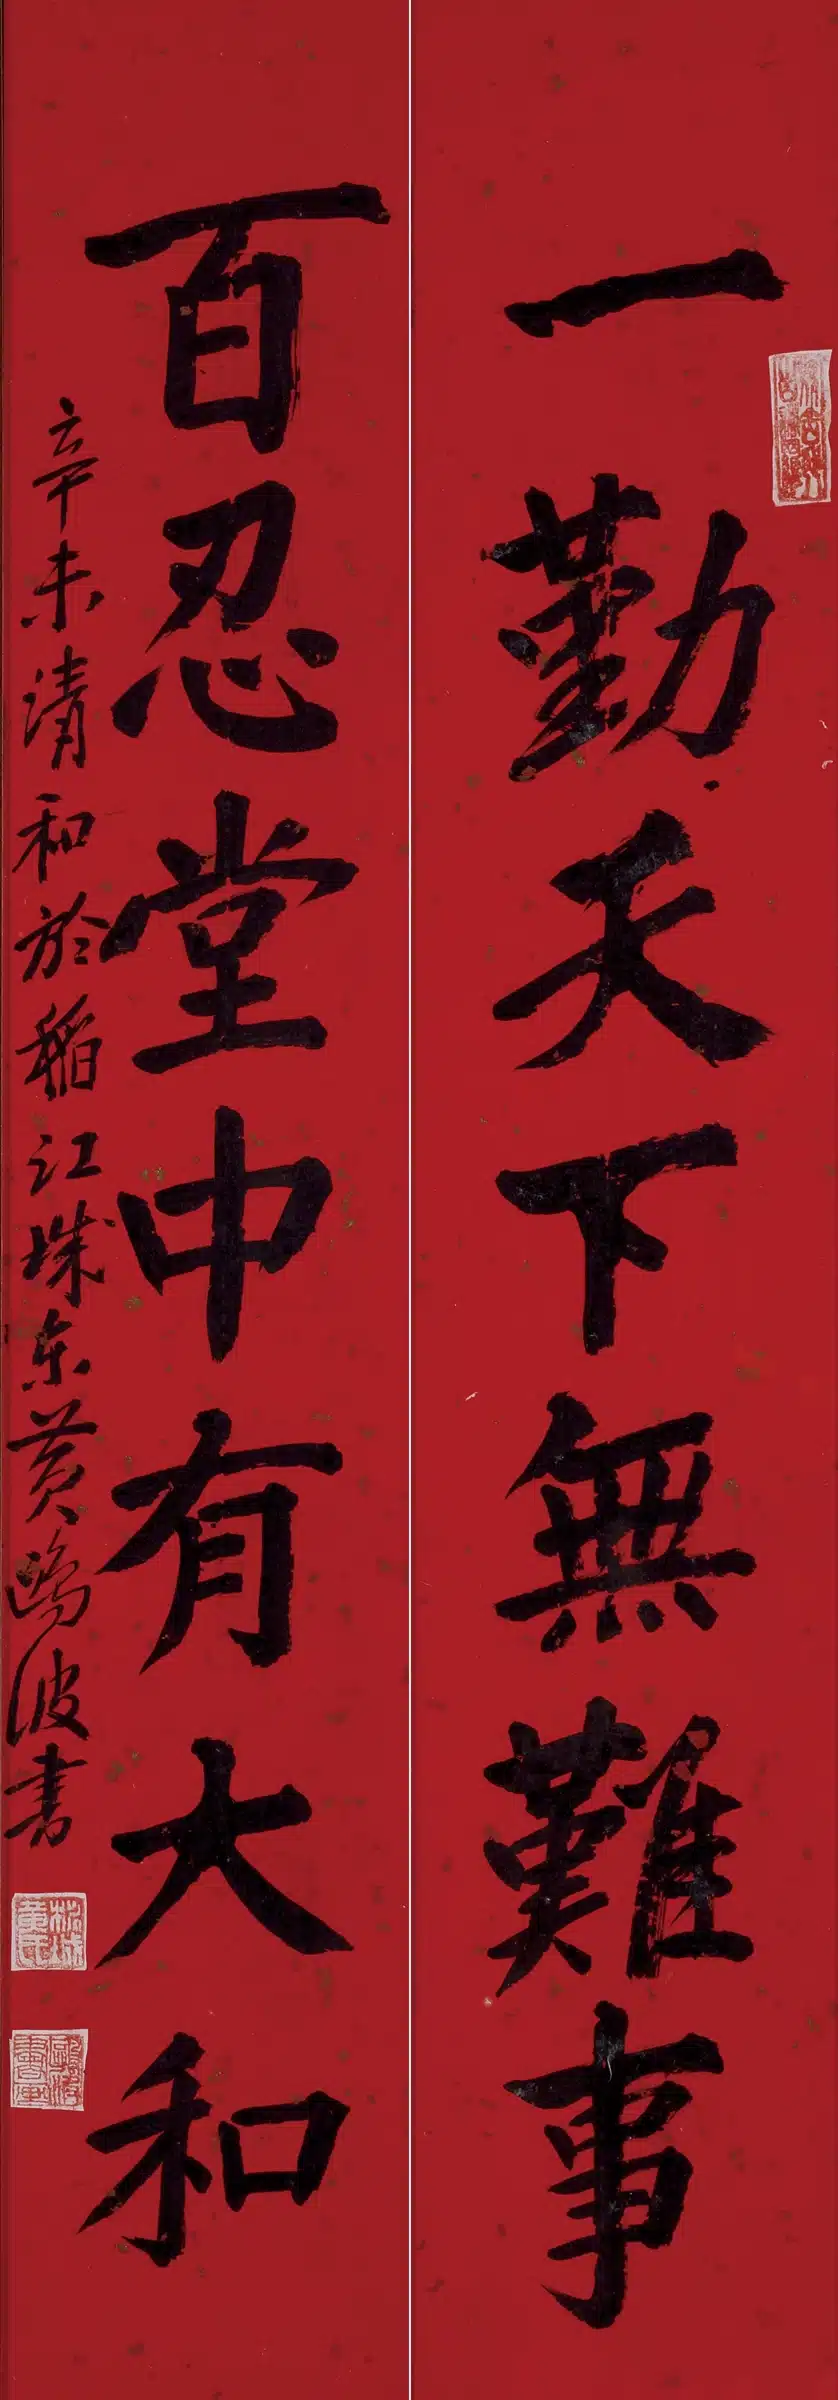 一勤天下無難事
百忍堂中有大和
辛未清和於稻江城東黃鴻波書